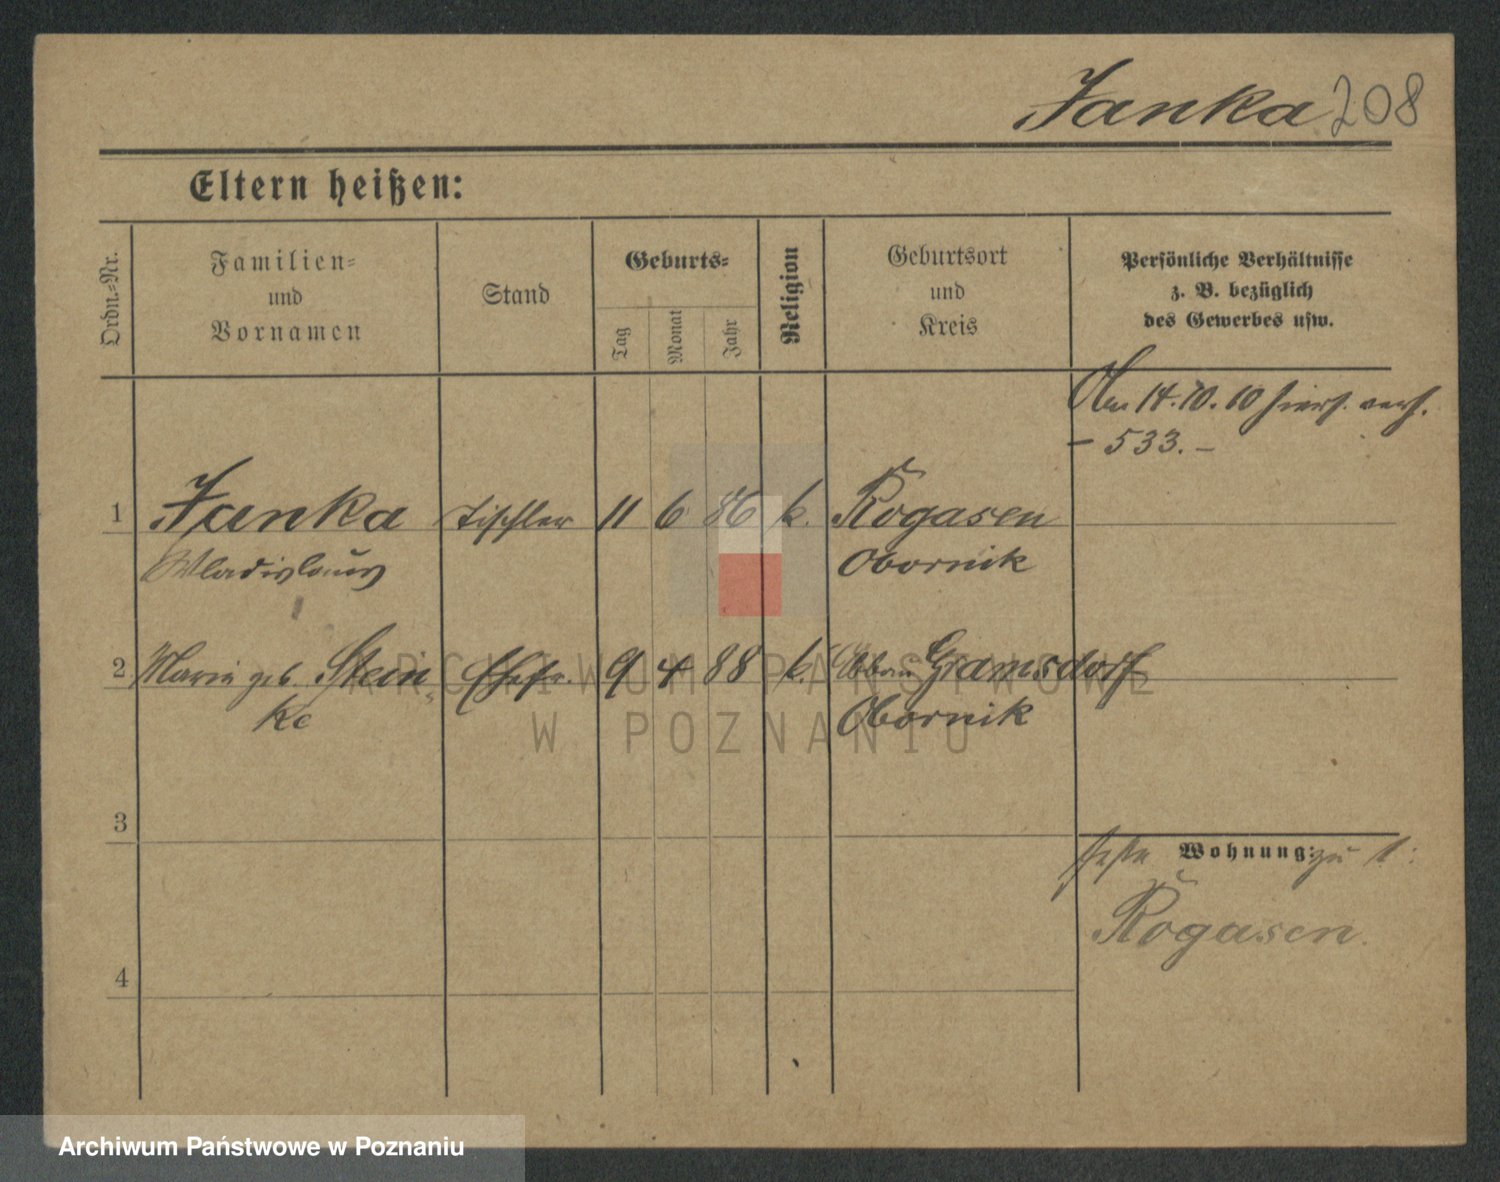 Janka 208
Eltern heißen:
Ordn.-Nr.
Familien-
und
Vornamen
Stand
Geburts-
Tag
Monat
Jahr
Religion
Geburtsort
und
Kreis
Persönliche Verhältnisse
z. B. bezüglich
des Gewerbes usw.
Am 14.10.10 hiers. verh.
- 533. -
1 Janka Tischler 11 6 86 k. Rogasen
Wladislaus Obornik
2 Marie geb. Stein- Ehefr. 9 4 88 k. Gramsdorf
ke Obornik
3
feste Wohnung: zu 1:
Rogasen.
4
ARCHIWUM PAŃSTWOWE
W POZNANIU
Archiwum Państwowe w Poznaniu